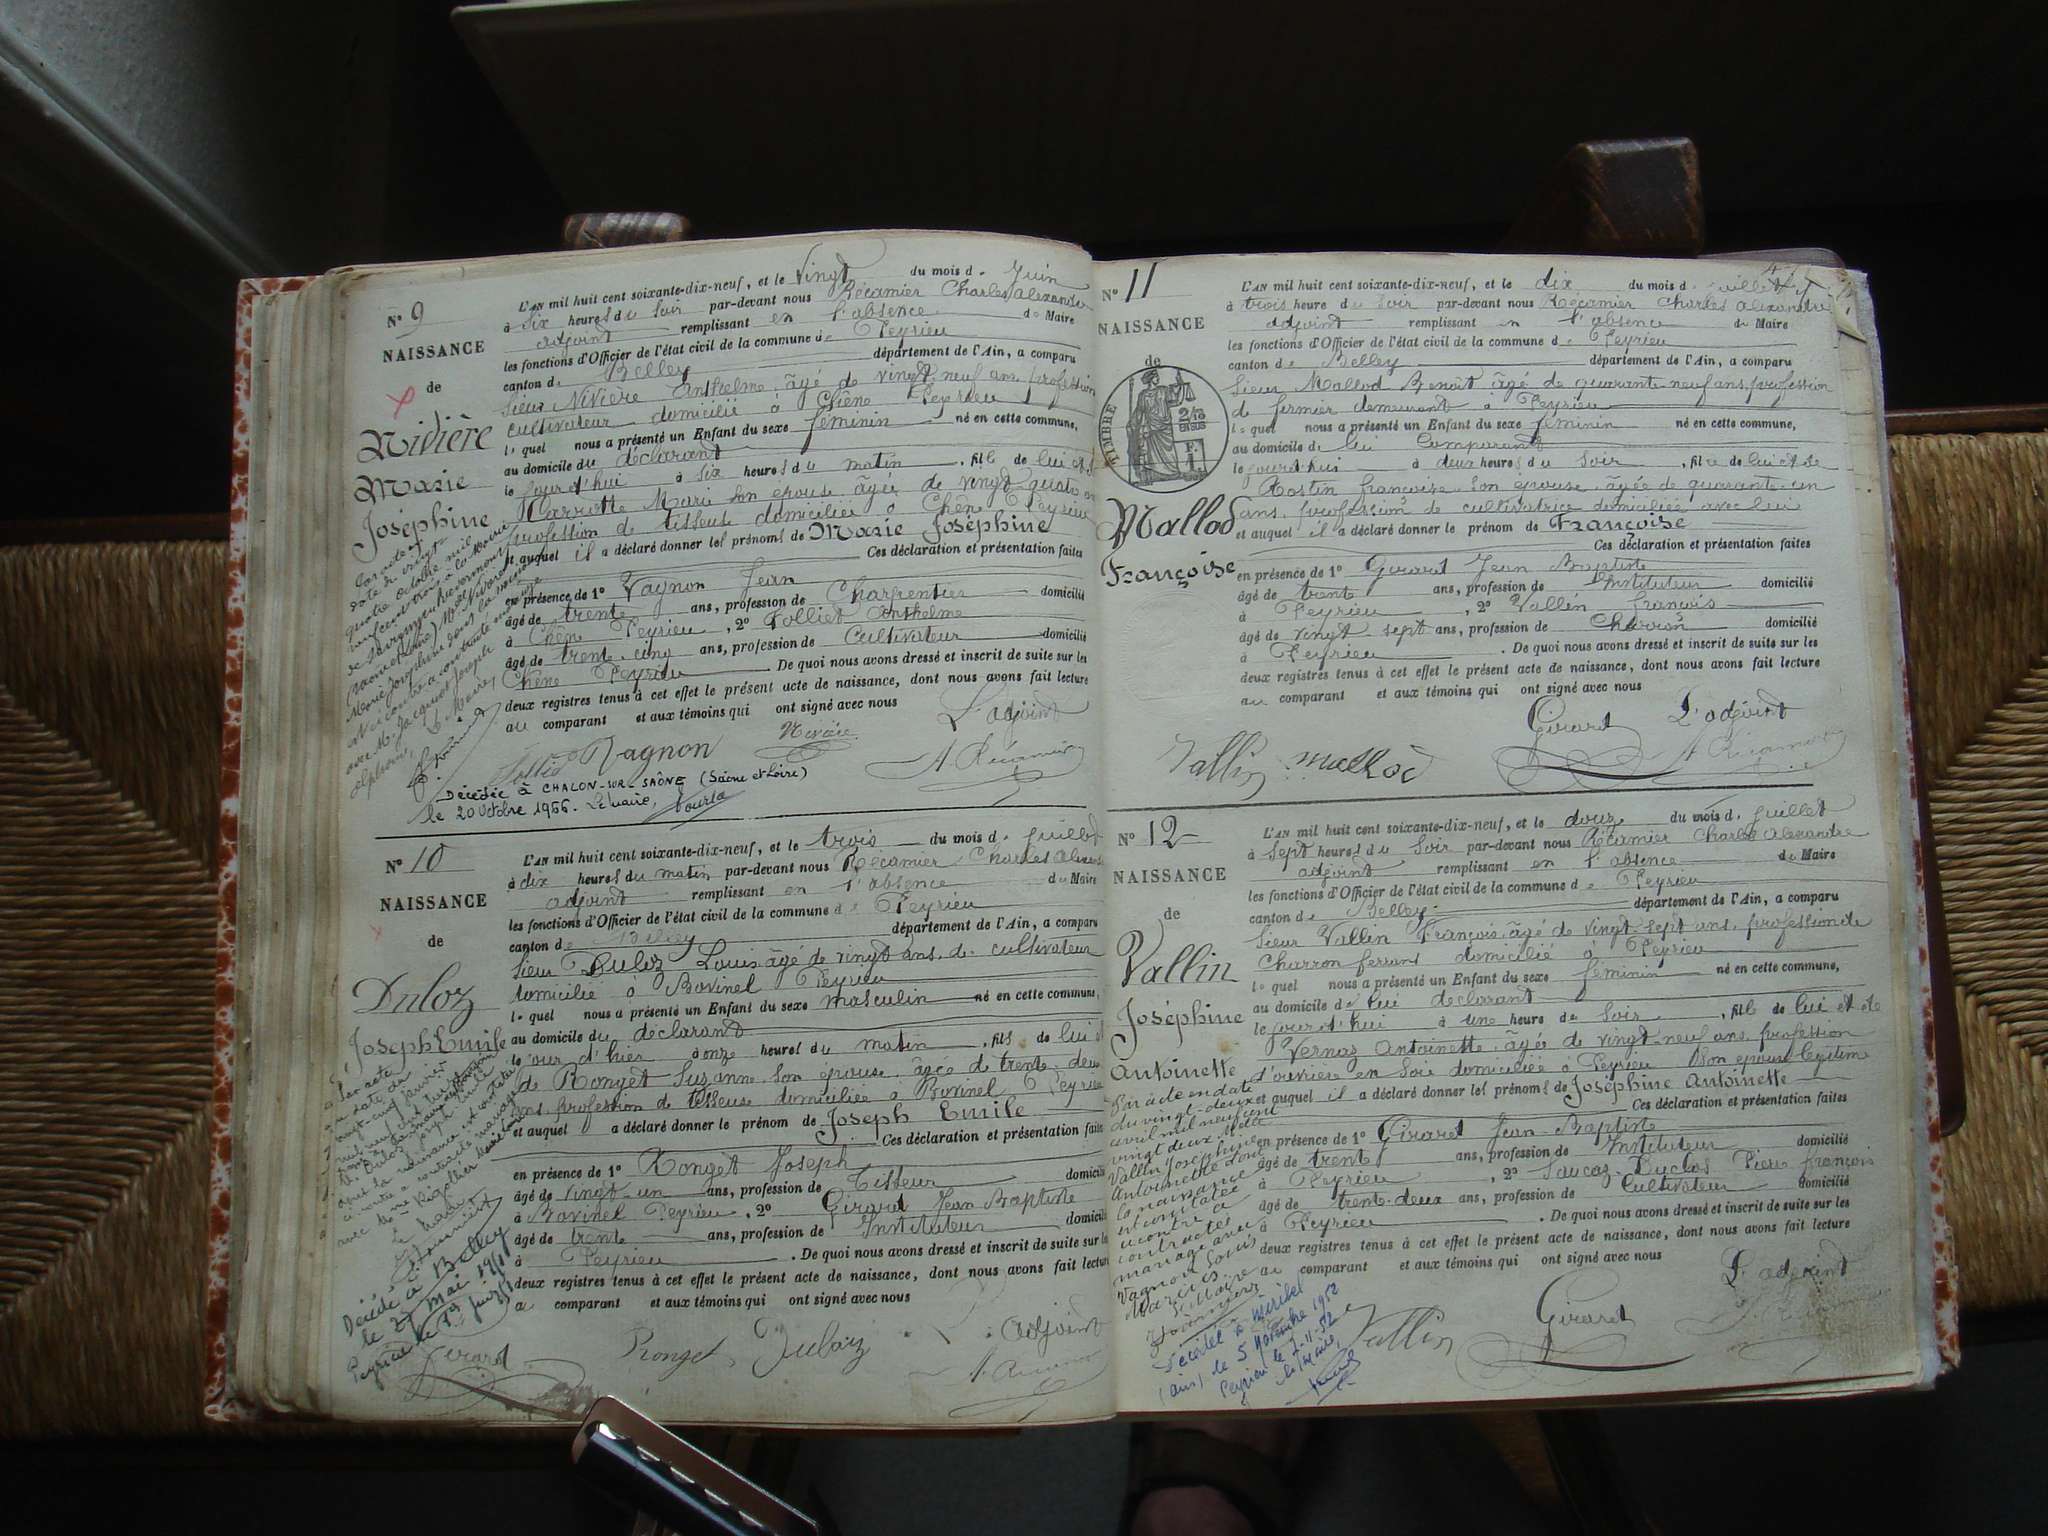 N° 9
NAISSANCE
de
Nivière
Marie
Joséphine
L'AN mil huit cent soixante-dix-neuf, et le vingt du mois de Juin
à six heures du soir par-devant nous Récamier Charles Alexandre
adjoint remplissant en l'absence du Maire
les fonctions d'Officier de l'état civil de la commune de Peyrieu
canton de Belley département de l'Ain, a comparu
Sieur Nivière Anthelme âgé de vingt neuf ans profession
cultivateur domicilié à Chêne Peyrieu
lequel nous a présenté un Enfant du sexe féminin né en cette commune,
au domicile du déclarant
le jour d'hui à six heures du matin, fille de lui et d
Carrotte Marie son épouse âgée de vingt quatre ans
profession de tisseuse domiciliée à Chêne Peyrieu
et auquel il a déclaré donner les prénoms de Marie Joséphine
Ces déclaration et présentation faites
en présence de 1° Vagnon Jean
âgé de trente ans, profession de Charpentier domicilié
à Chêne Peyrieu, 2° Folliet Anthelme
âgé de trente cinq ans, profession de Cultivateur domicilié
Chêne Peyrieu. De quoi nous avons dressé et inscrit de suite sur les
deux registres tenus à cet effet le présent acte de naissance, dont nous avons fait lecture
au comparant et aux témoins qui ont signé avec nous
L'adjoint
Vagnon
A. Récamier
Décédée à CHALON-SUR-SAÔNE (Saône et Loire)
le 20 octobre 1966. Le Maire,
N° 10
NAISSANCE
de
Duloz
Joseph Emile
L'AN mil huit cent soixante-dix-neuf, et le trois du mois de juillet
à dix heures du matin par-devant nous Récamier Charles Alexan
adjoint remplissant en l'absence du Maire
les fonctions d'Officier de l'état civil de la commune de Peyrieu
canton de Belley département de l'Ain, a comparu
Sieur Duloz Louis âgé de vingt ans de cultivateur
domicilié à Bovinel Peyrieu
lequel nous a présenté un Enfant du sexe masculin né en cette commune,
au domicile du déclarant
le jour d'hier à onze heures du matin, fils de lui et
de Ronget Suzanne son épouse âgée de trente deux
ans profession de tisseuse domiciliée à Bovinel Peyrieu
et auquel a déclaré donner le prénom de Joseph Emile
Ces déclaration et présentation faites
en présence de 1° Ronget Joseph
âgé de vingt un ans, profession de Tisseur domicilié
à Bovinel Peyrieu, 2° Giraret Jean Baptiste
âgé de trente ans, profession de Instituteur domicilié
à Peyrieu. De quoi nous avons dressé et inscrit de suite sur les
deux registres tenus à cet effet le présent acte de naissance, dont nous avons fait lecture
au comparant et aux témoins qui ont signé avec nous
Décédé à Belley
le 27 mai
Ronget
adjoint
N° 11
NAISSANCE
de
TIMBRE
Mallod
Françoise
L'AN mil huit cent soixante-dix-neuf, et le dix du mois de juillet
à trois heures du soir par-devant nous Récamier Charles Alexandre
adjoint remplissant en l'absence du Maire
les fonctions d'Officier de l'état civil de la commune de Peyrieu
canton de Belley département de l'Ain, a comparu
Sieur Mallod Benoît âgé de quarante-neuf ans, profession
de fermier demeurant à Peyrieu
lequel nous a présenté un Enfant du sexe féminin né en cette commune,
au domicile de lui comparant
le jourd'hui à deux heures du soir, fille de lui et de
Rostin françoise son épouse âgée de quarante-un
ans, profession de cultivatrice domiciliée avec lui
et auquel il a déclaré donner le prénom de Françoise
Ces déclaration et présentation faites
en présence de 1° Giraret Jean Baptiste
âgé de trente ans, profession de Instituteur domicilié
à Peyrieu, 2° Vallin françois
âgé de vingt-sept ans, profession de Charron domicilié
à Peyrieu. De quoi nous avons dressé et inscrit de suite sur les
deux registres tenus à cet effet le présent acte de naissance, dont nous avons fait lecture
au comparant et aux témoins qui ont signé avec nous
Giraret L'adjoint
Vallin Mallod A. Récamier
N° 12
NAISSANCE
de
Vallin
Joséphine
Antoinette
L'AN mil huit cent soixante-dix-neuf, et le douze du mois de juillet
à sept heures du soir par-devant nous Récamier Charles Alexandre
adjoint remplissant en l'absence du Maire
les fonctions d'Officier de l'état civil de la commune de Peyrieu
canton de Belley département de l'Ain, a comparu
Sieur Vallin François âgé de vingt-sept ans, profession de
Charron ferrant domicilié à Peyrieu
lequel nous a présenté un Enfant du sexe féminin né en cette commune,
au domicile de lui déclarant
le jour d'hui à une heure du soir, fille de lui et de
Vernaz Antoinette âgée de vingt-neuf ans, profession
d'ouvrière en soie domiciliée à Peyrieu son épouse légitime
et auquel il a déclaré donner les prénoms de Joséphine Antoinette
Ces déclaration et présentation faites
en présence de 1° Giraret Jean-Baptiste
âgé de trente ans, profession de Instituteur domicilié
à Peyrieu, 2° Saucaz-Duclos Pierre françois
âgé de trente-deux ans, profession de Cultivateur domicilié
à Peyrieu. De quoi nous avons dressé et inscrit de suite sur les
deux registres tenus à cet effet le présent acte de naissance, dont nous avons fait lecture
au comparant et aux témoins qui ont signé avec nous
Par acte en date
du vingt-deux
avril mil neuf cent
vingt deux
Vallin Joséphine
Antoinette dont
la naissance
est constatée
ci contre a
contracté
mariage avec
Vagnon Louis
Décédée à Miribel
(Ain) le 5 Novembre 1952
Peyrieu le 7-11-52
Le Maire,
Vallin Giraret L'adjoint